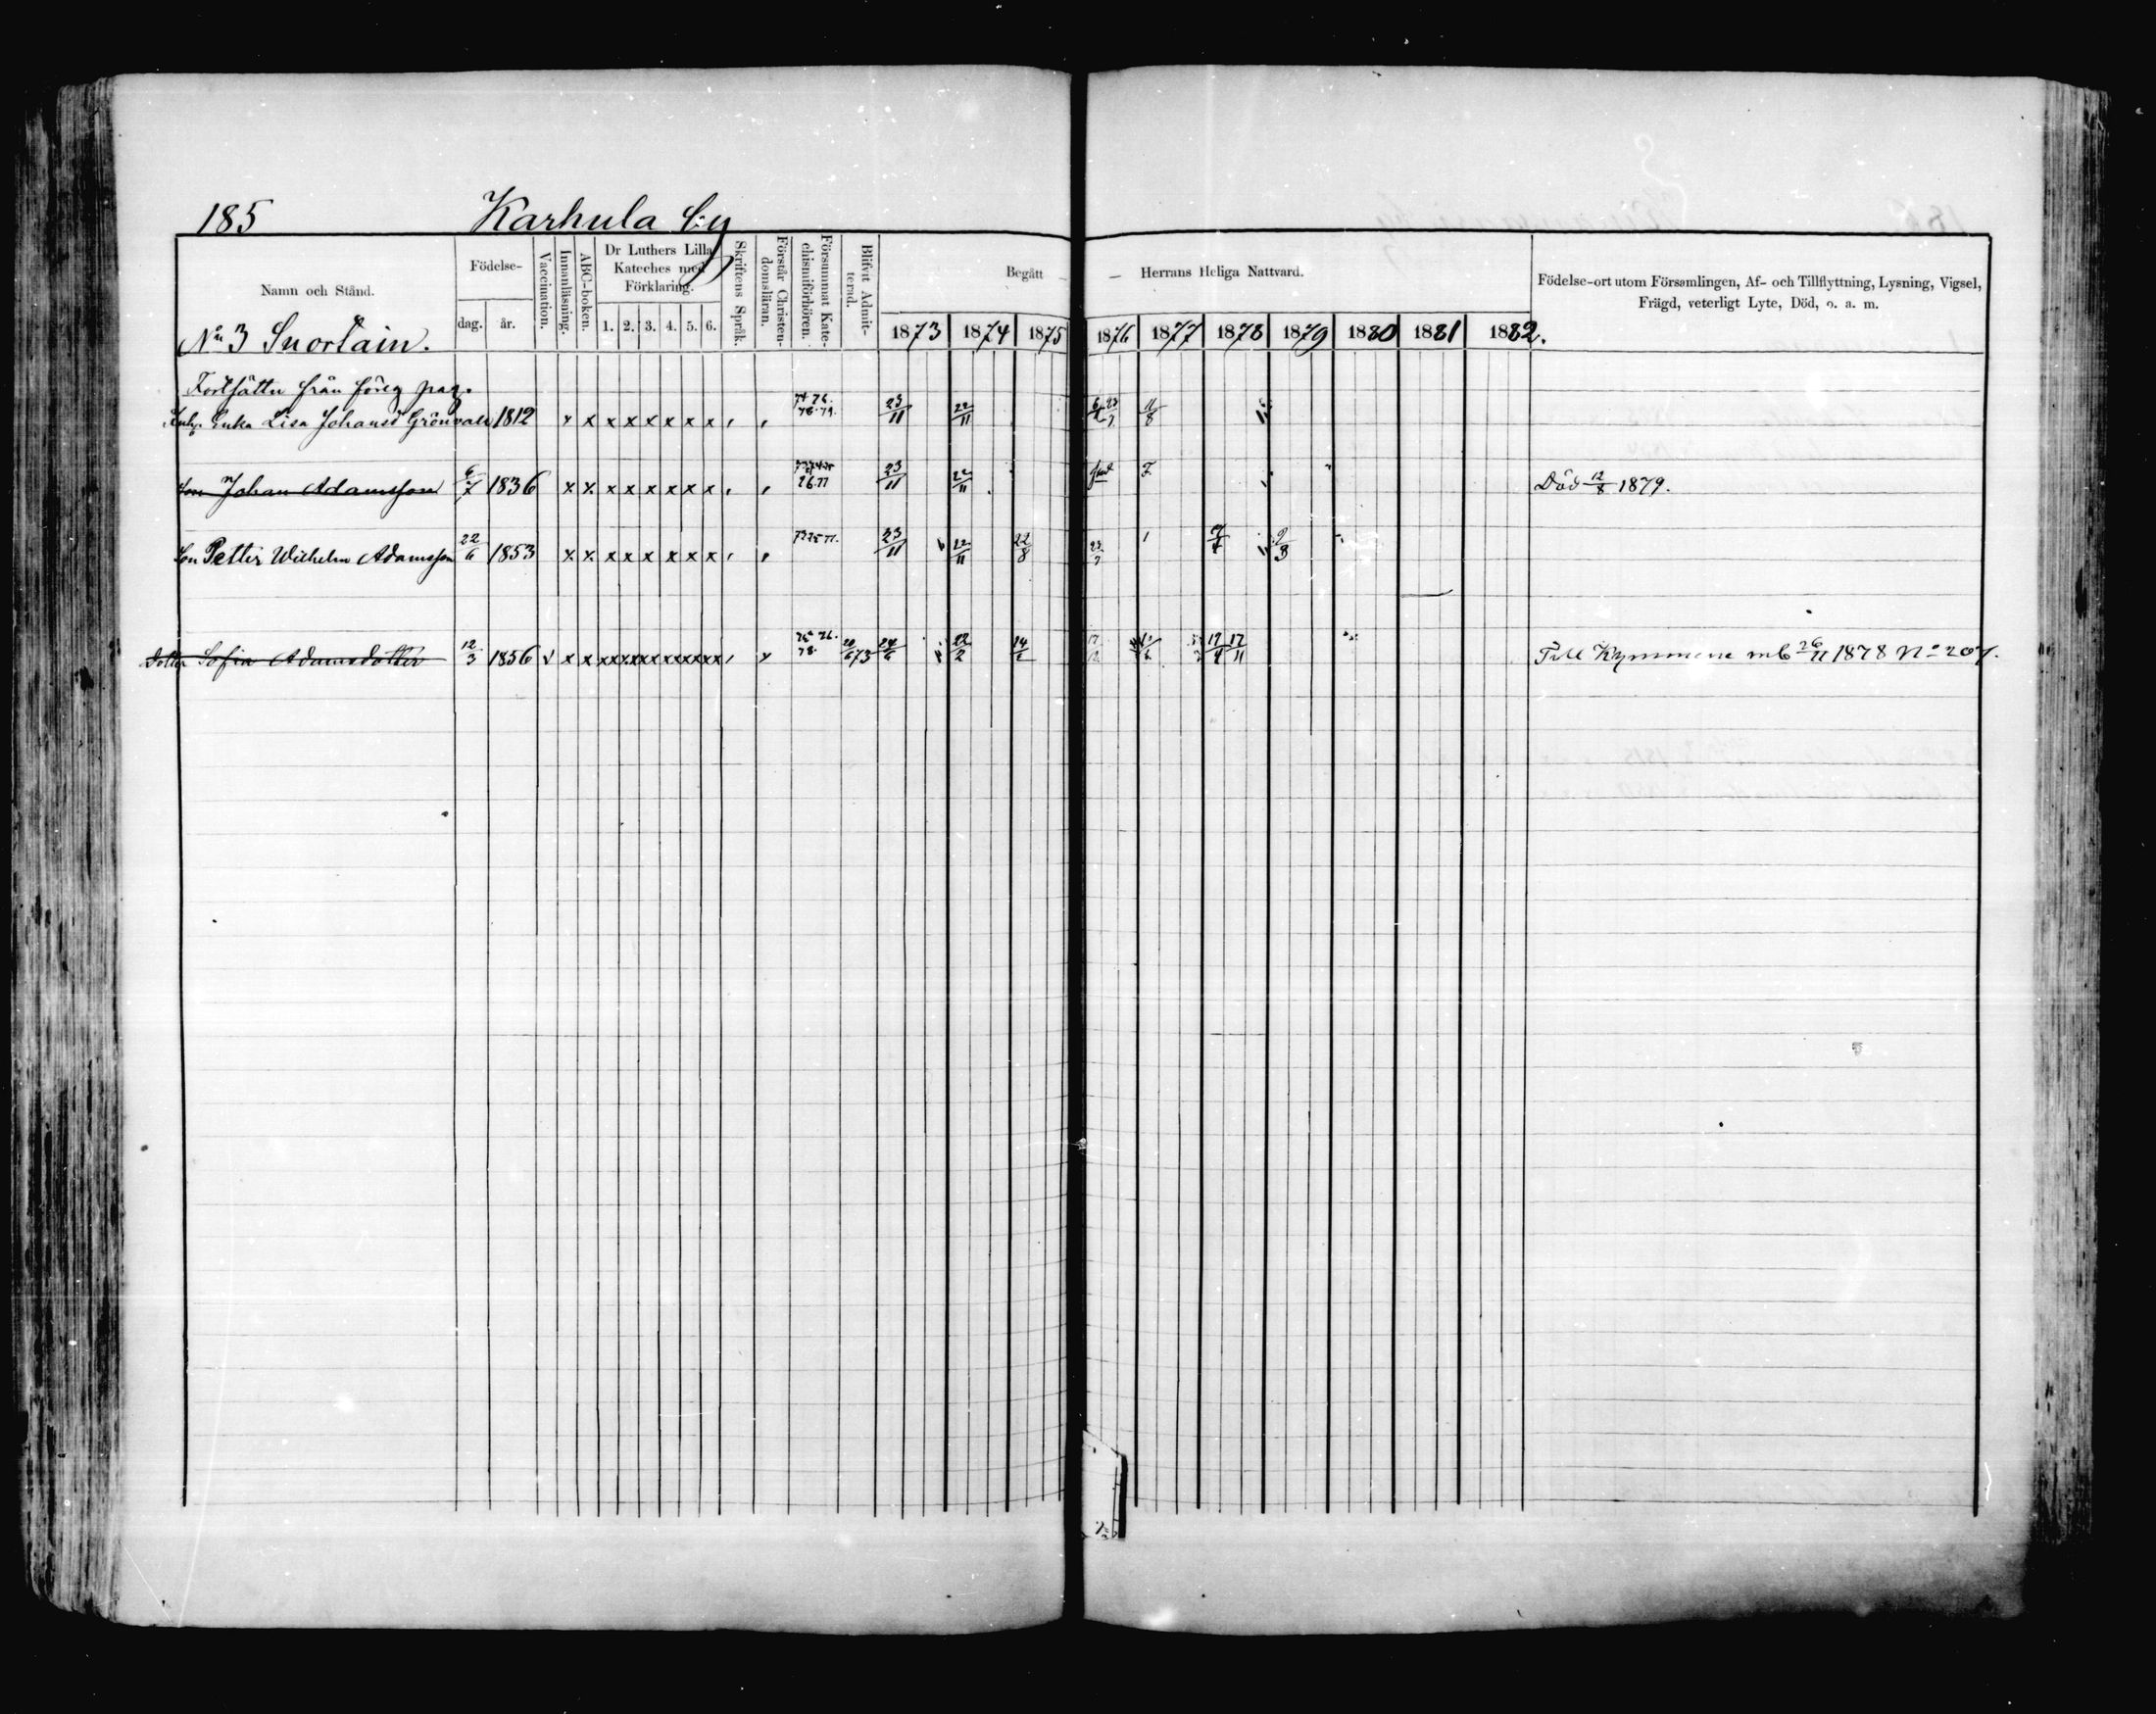 185 Karhula by
Namn och Stånd.
Födelse-
dag. år.
Vaccination.
Innanläsning.
ABC-boken.
Dr Luthers Lilla
Kateches med
Förklaring.
1. 2. 3. 4. 5. 6.
Skriftens Språk.
Förstår Christen-
domsläran.
Försummat Kate-
chismiförhören.
Blifvit Admit-
terad.
Begått — — Herrans Heliga Nattvard.
1873 1874 1875 1876 1877 1878 1879 1880 1881 1882.
Födelse-ort utom Församlingen, Af- och Tillflyttning, Lysning, Vigsel,
Frägd, veterligt Lyte, Död, o. a. m.
No 3 Suortain.
Fortsättn från föreg pag.
Enka Lisa Johansd Grönvall 1812 x x x x x x x x 74 76. 78. 79. 23/11 22/11 11/8
Son Johan Adamsson 6/7 1836 x x x x x x x x 26.77 23/11 22/11 F Död 12/8 1879.
Son Petter Wilhelm Adamsson 22/6 1853 x x x x x x x x 23/11 22/11 22/8 23/7 9/3
dotter Sofia Adamsdotter 12/3 1856 v x x xx xx xx xx xx xx x 75 76. 78. 20/6 73 24/6 22/2 14/6 17/11 Till Kymmene mb 26/11 1878 No 207.